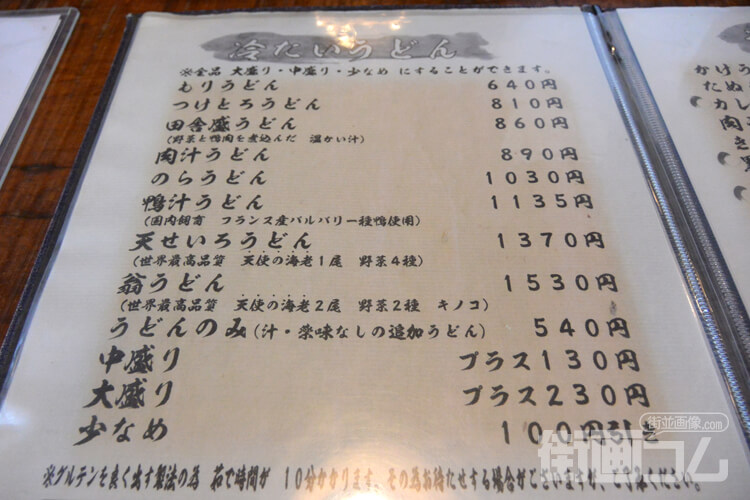 冷たいうどん
※全品 大盛り・中盛り・少なめ にすることができます。
もりうどん 640円
つけとろうどん 810円
田舎盛うどん 860円
(野菜と鴨肉を煮込んだ 温かい汁)
肉汁うどん 890円
のらうどん 1030円
鴨汁うどん 1135円
(国内飼育 フランス産バルバリー種鴨使用)
天せいろうどん 1370円
(世界最高品質 天使の海老1尾 野菜4種)
翁うどん 1530円
(世界最高品質 天使の海老2尾 野菜2種 キノコ)
うどんのみ(汁・薬味なしの追加うどん) 540円
中盛り プラス130円
大盛り プラス230円
少なめ 100円引き
※グルテンを良く出す製法の為 茹で時間が 10分かかります。その為お待たせする場合がございますが、ご了承ください。
かけう
たぬ
カレ
肉
き
街並画像.com
街画コム